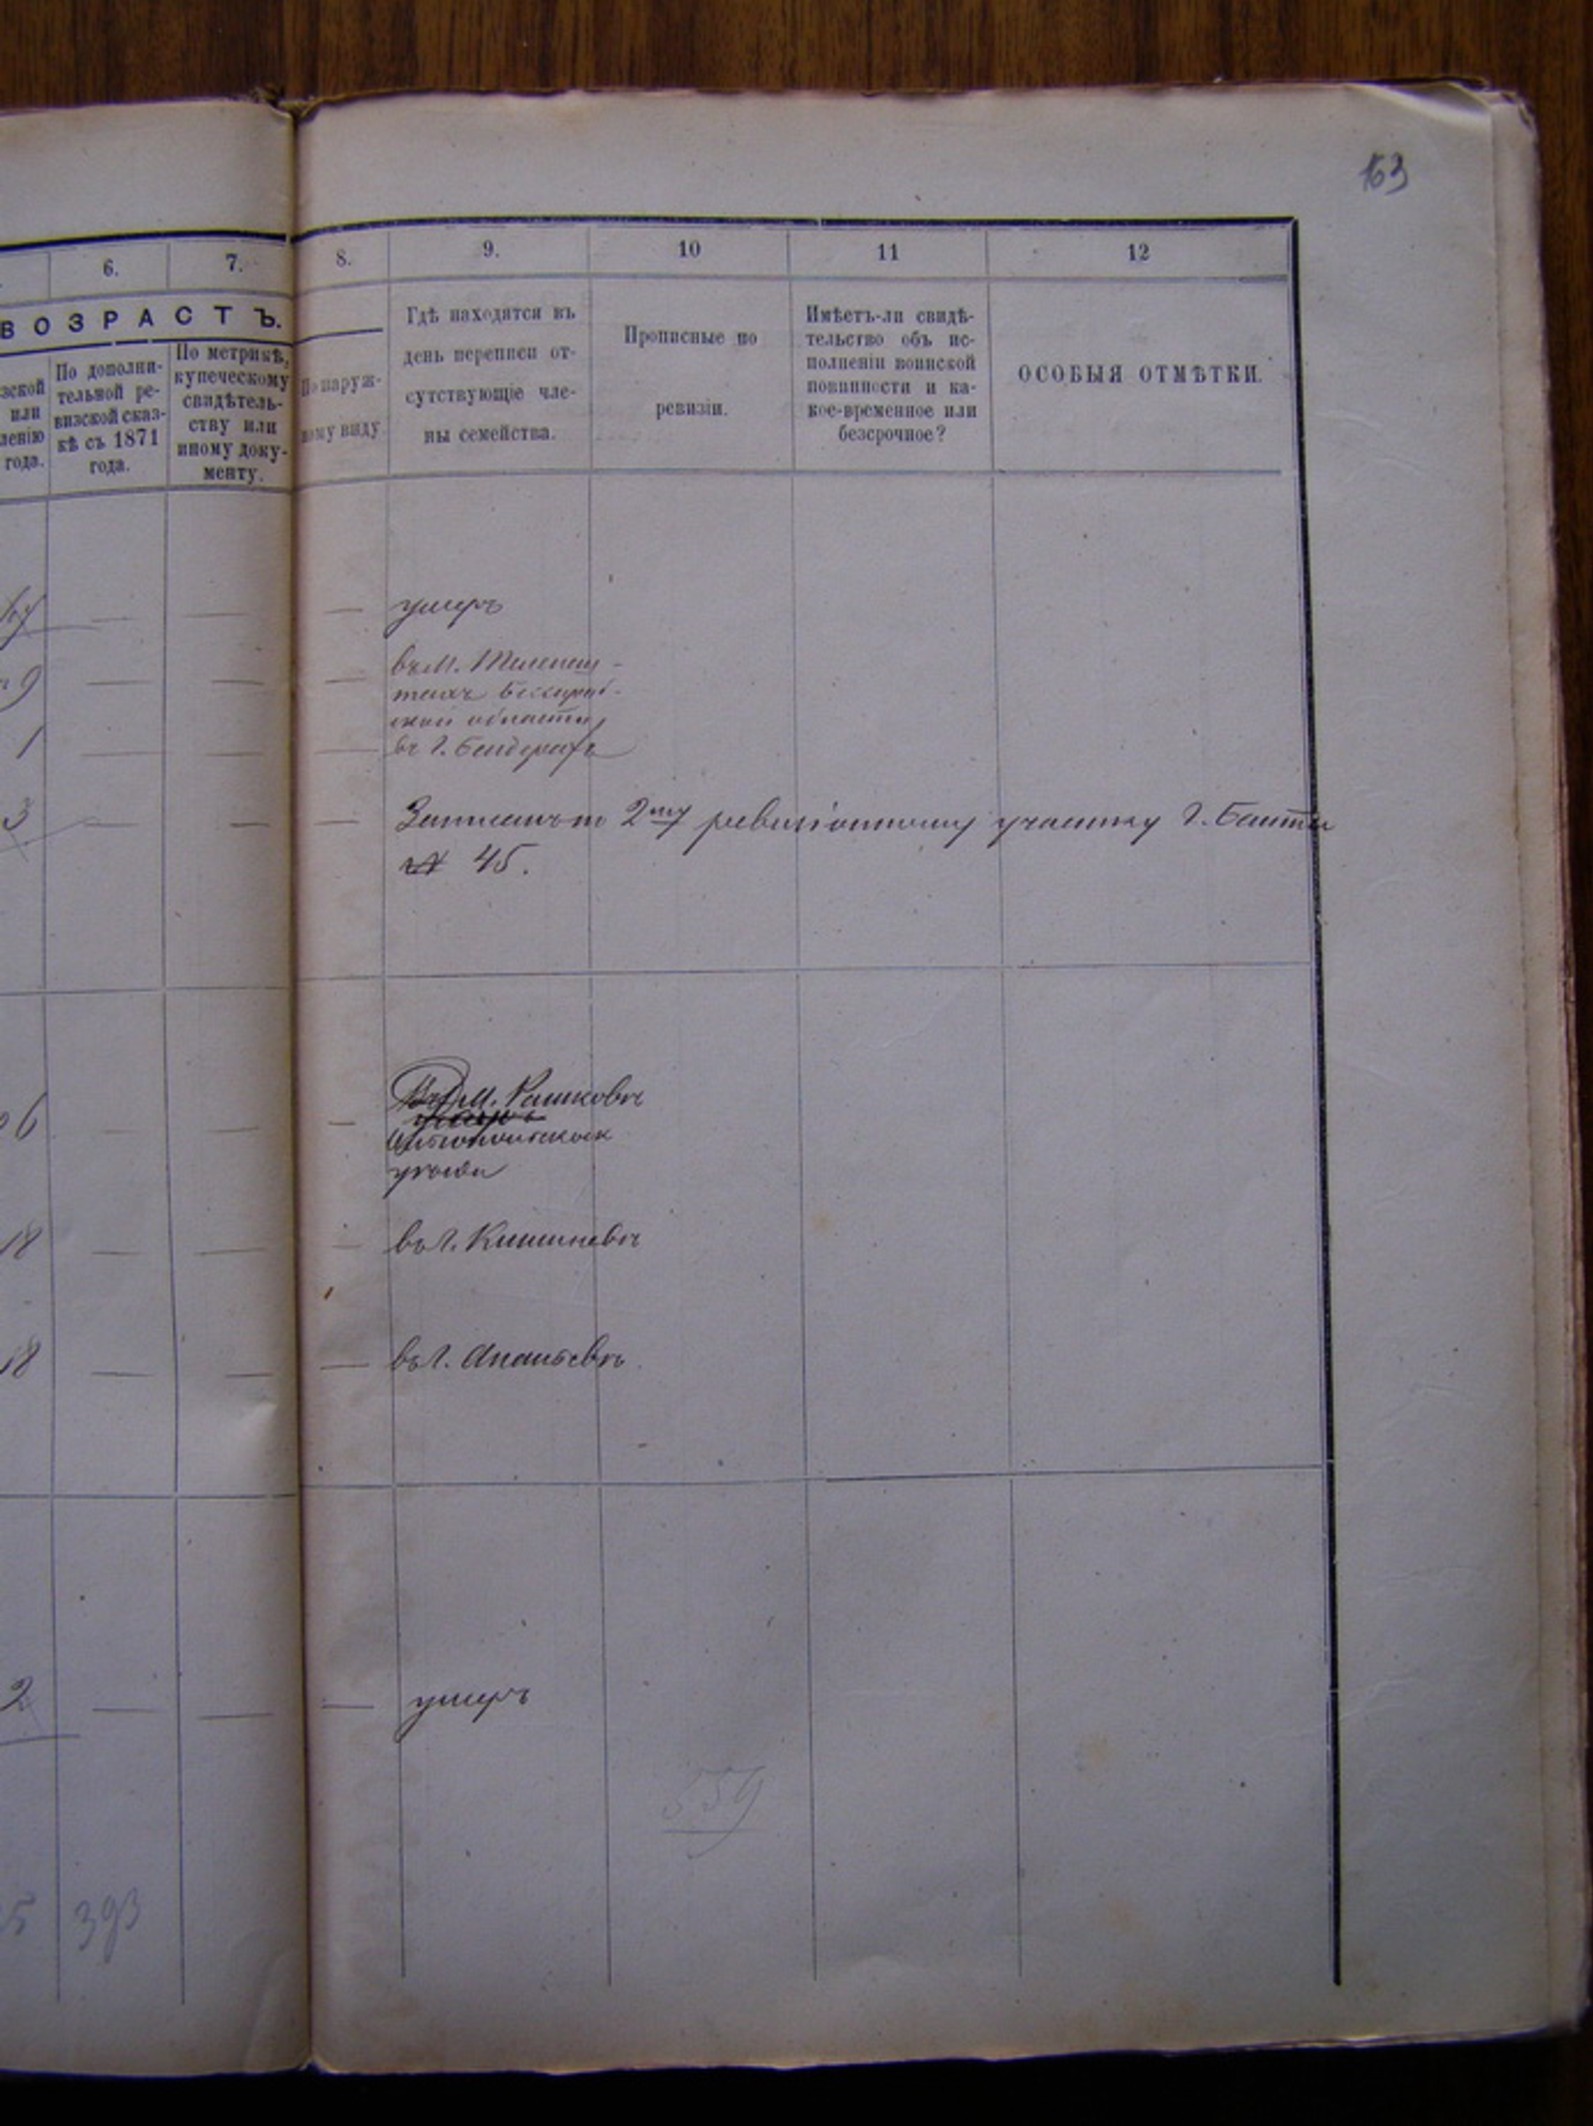 163
6.
7.
8.
9.
10
11
12
ВОЗРАСТЪ.
зской
или
ленію
года.
По дополни-
тельной ре-
визской сказ-
кѣ съ 1871
года.
По метрикѣ,
купеческому
свидѣтель-
ству или
иному доку-
менту.
По наруж-
ному виду.
Гдѣ находятся въ
день переписи от-
сутствующіе чле-
ны семейства.
Прописные по
ревизіи.
Имѣетъ-ли свидѣ-
тельство объ ис-
полненіи воинской
повинности и ка-
кое-временное или
безсрочное?
ОСОБЫЯ ОТМѢТКИ.
— — — умеръ
9 — — — въ м. Теленеш-
тахъ Бессараб-
ской области
1 — — — въ г. Бендерахъ
3 — — — Записанъ по 2му ревизіонному участку г. Балты
№ 45.
6 — — — Въ м. Рашковѣ
умеръ
уѣзда
18 — — — въ г. Кишиневѣ
18 — — — въ г. Ананьевѣ
2 — — — умеръ
559
5 393